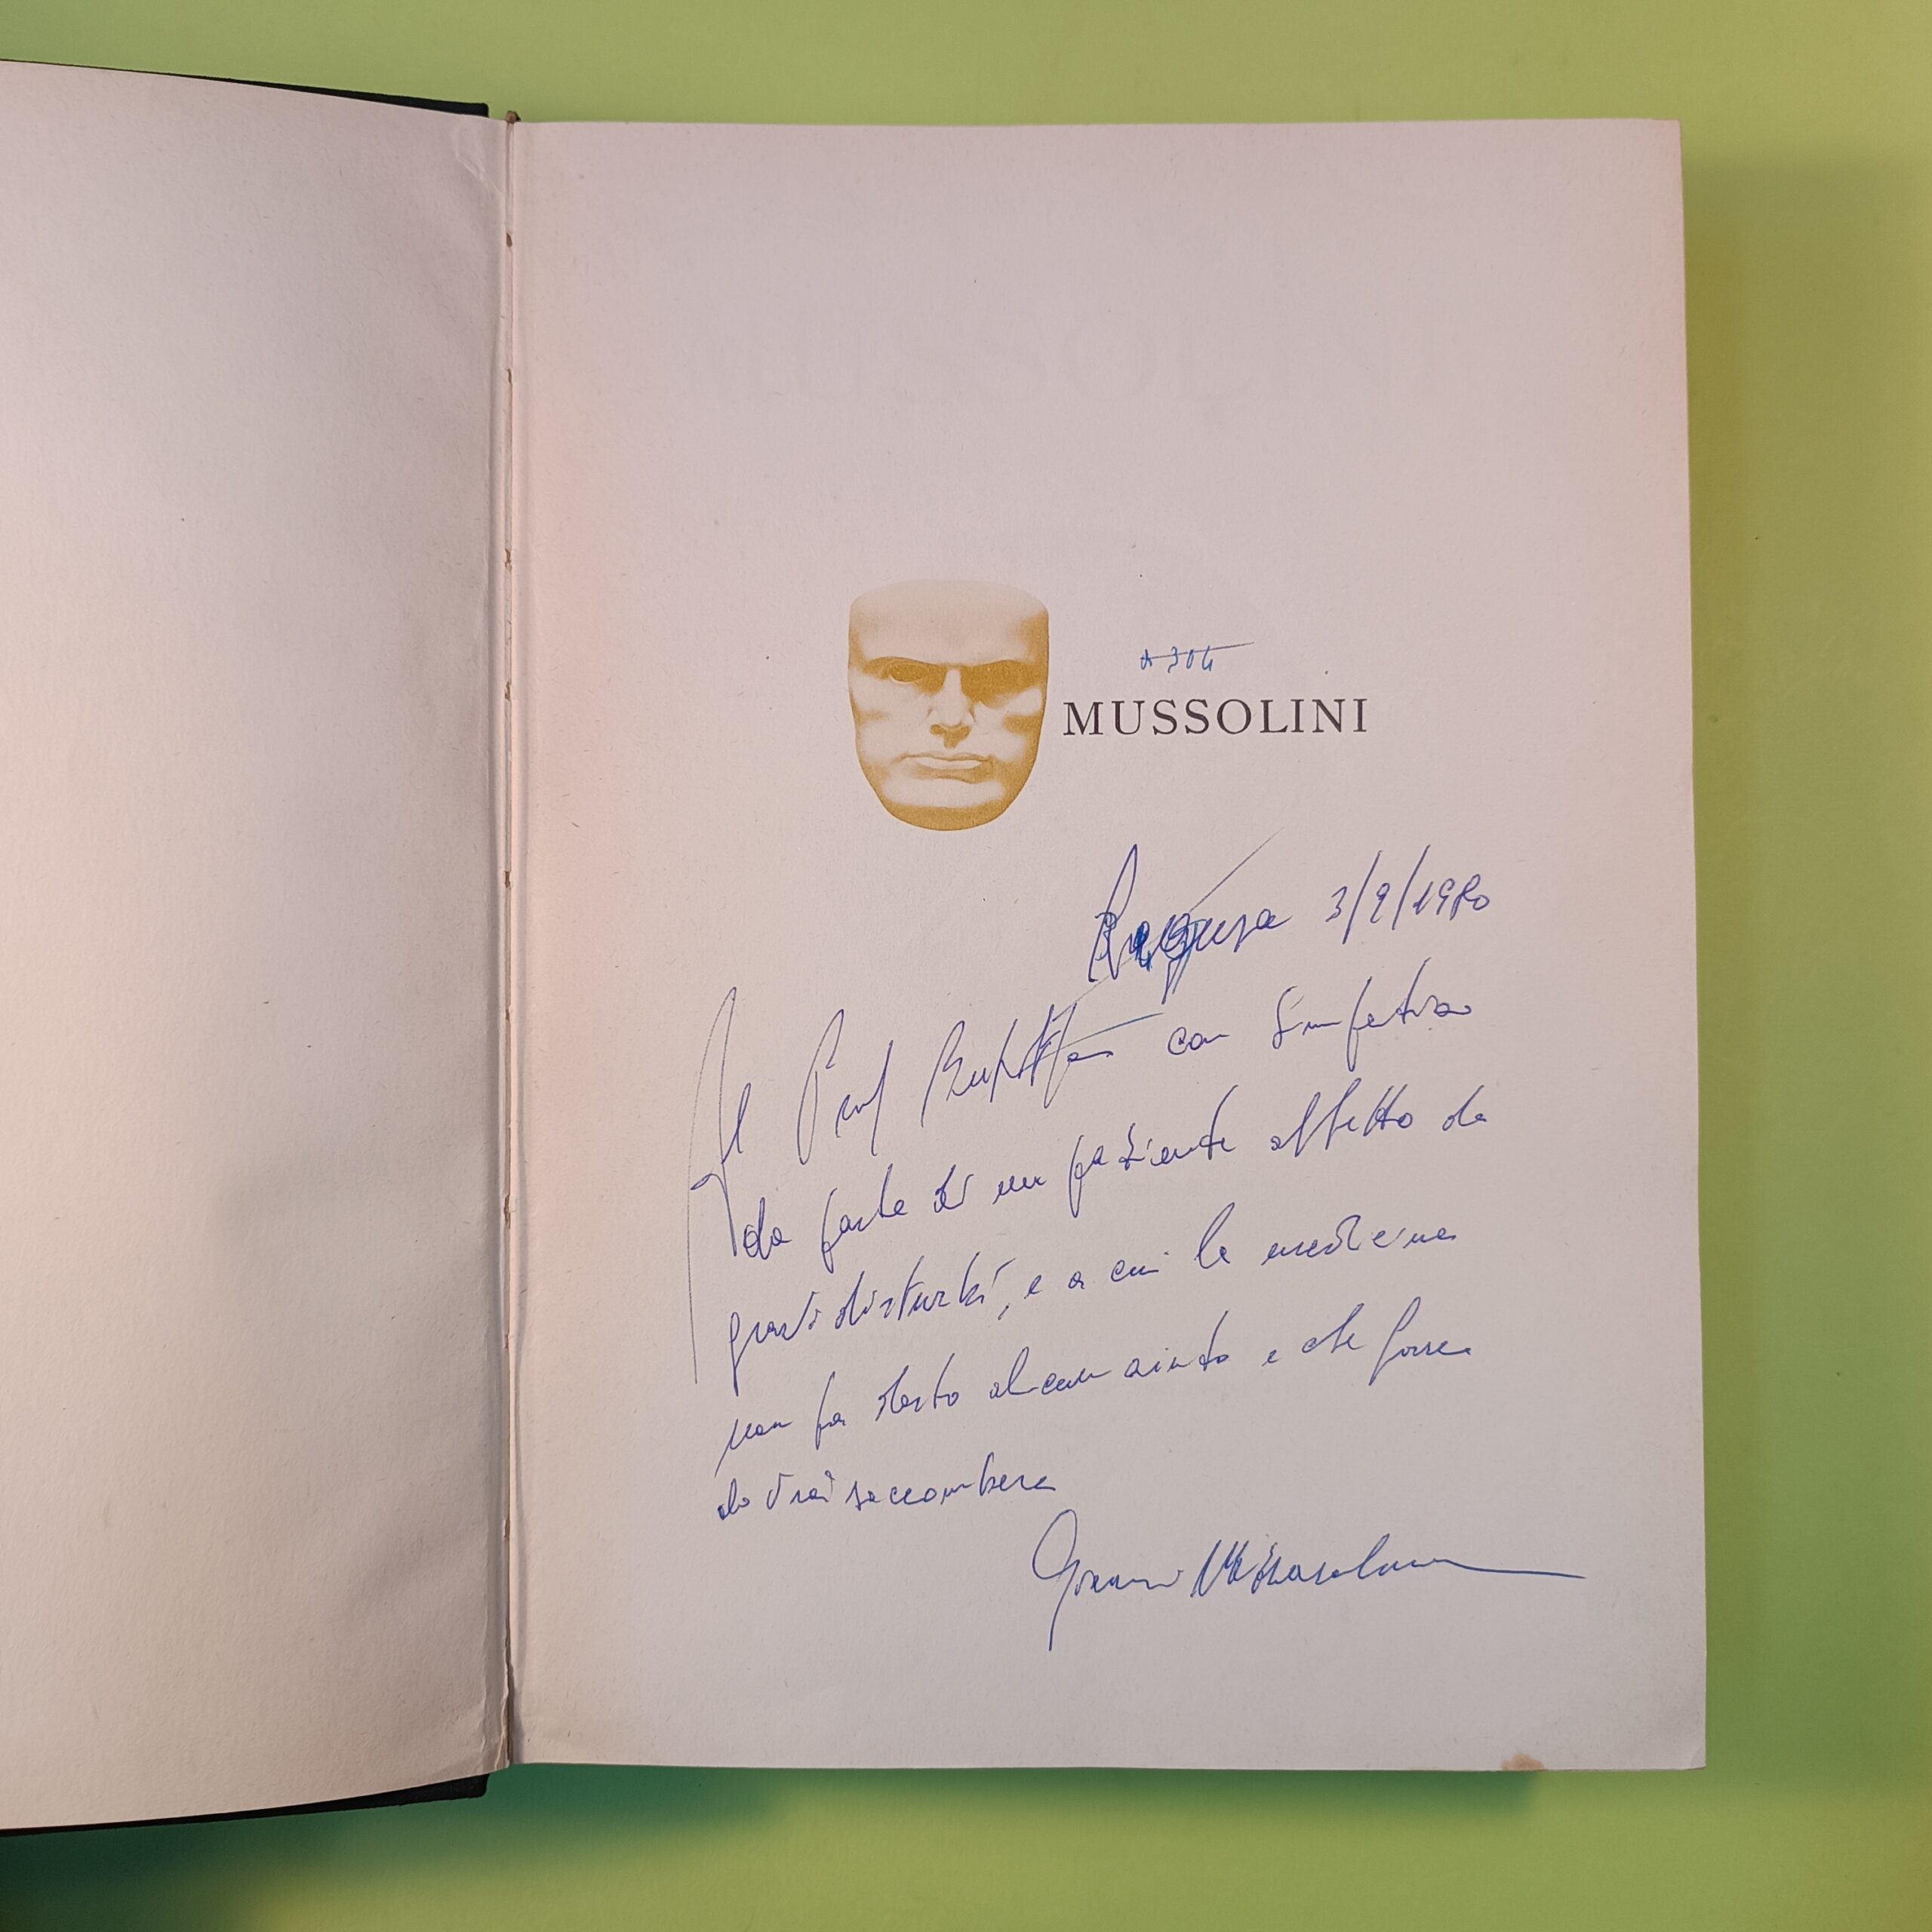 A 304
MUSSOLINI
Ragusa 3/9/1980
Al Prof con Simpatia
da parte di un paziente affetto da
gravi disturbi, e a cui la medicina
non ha dato alcun aiuto e che forse
dovrà soccombere